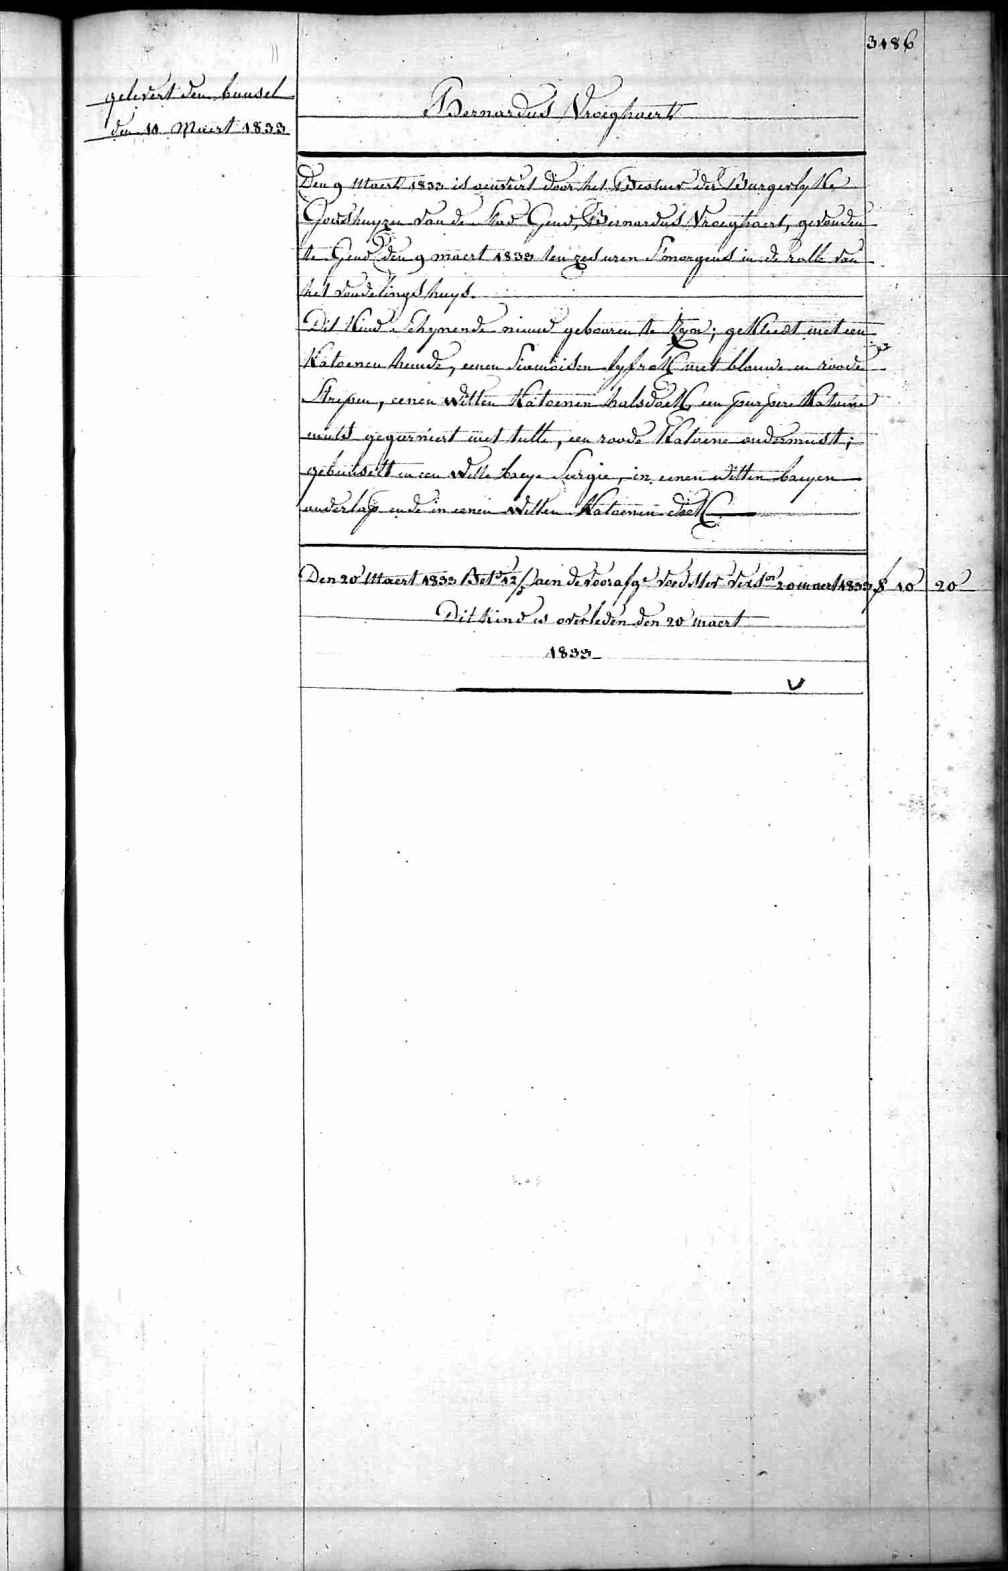 3486
gelevert den bunsel
den 10 Maert 1833
Bernardus Vroeghaert
Den 9 Maert 1833 is door het Bestuer der Burgerlyke
Godshuyzen van de Stad Gend, Bernardus Vroeghaert, gevonden
te Gend den 9 maert 1833 ten zes uren S'morgens in de rolle van
het vondelingshuys.
Dit Kind schynende nieuw gebooren te Zyn; gekleedt met een
Katoenen hemde, eenen Siamoisen lyfrok met blauwe en roode
Strepen, eenen Witten Katoenen halsdoek, een purpere Katoene
muts gegarniert met tulle, een roode Katoene ondermust;
gebunselt in een Witte baeye Surgie, in eenen Witten baeyen
onderlap ende in eenen Witten Katoenen doek
Den 20 Maert 1833 Bet. 12 aen de voorafge voedster 20 maert 1833 8 10 20
Dit kind is overleden den 20 maert
1833